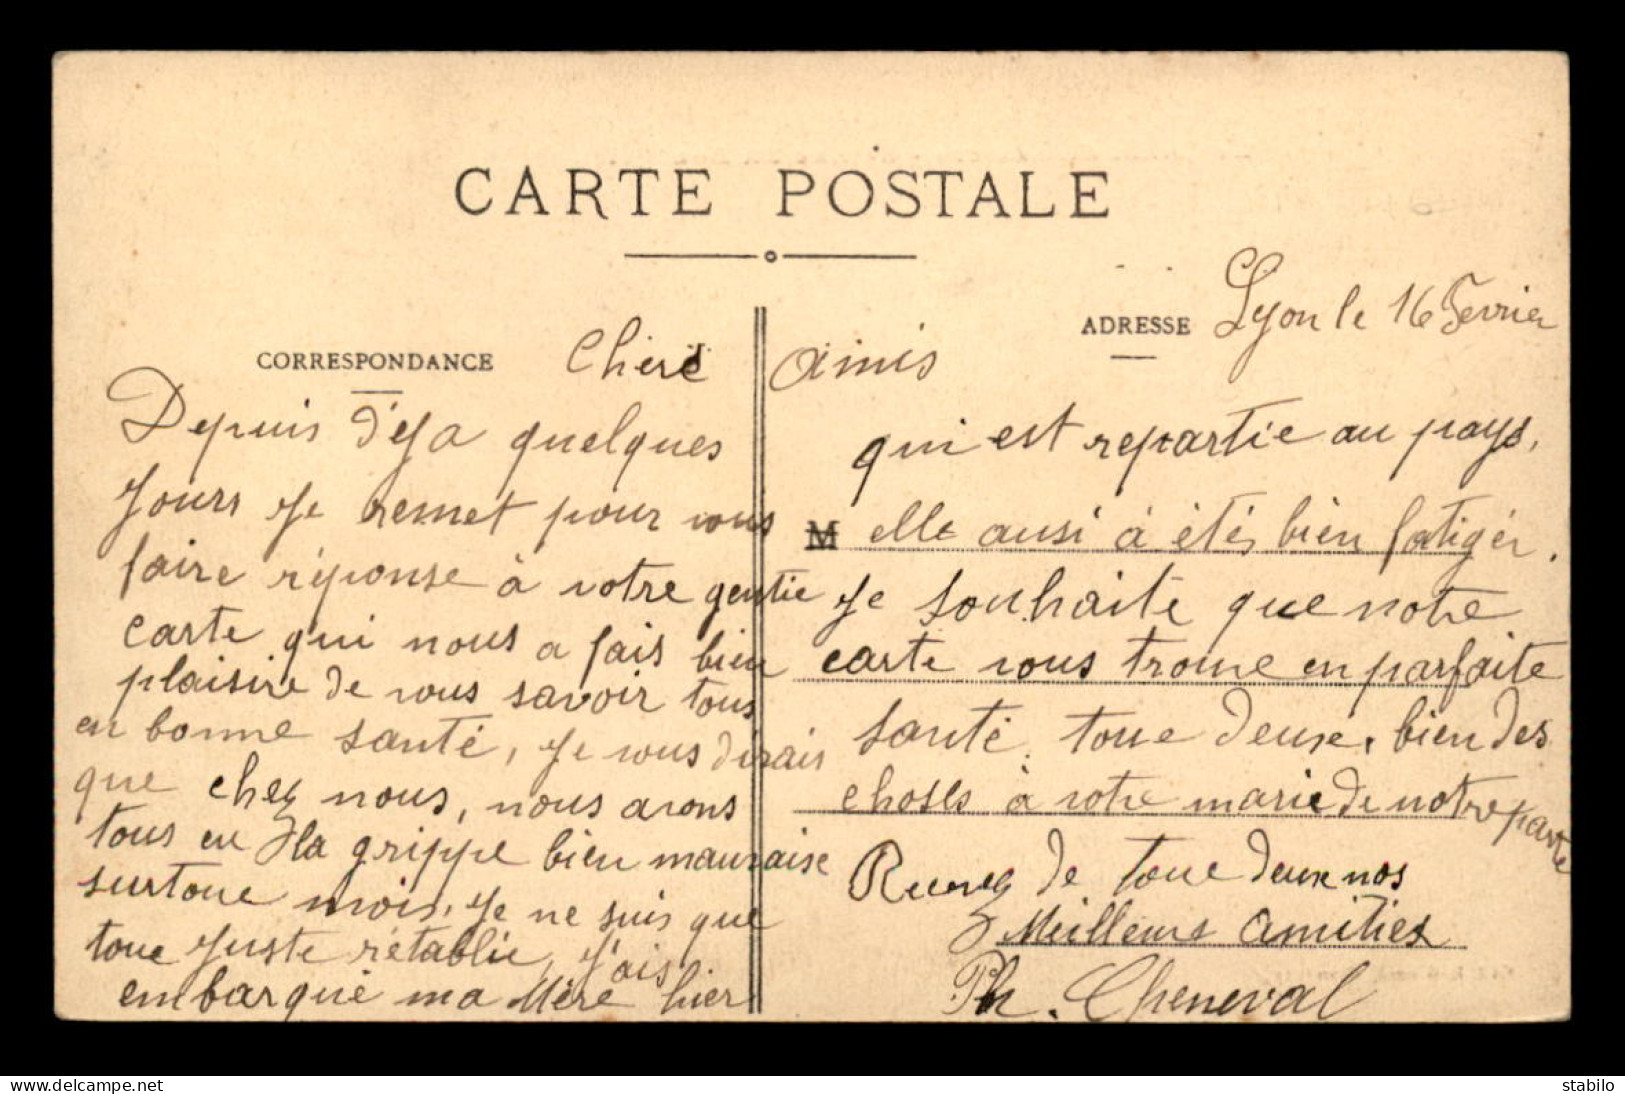 CARTE POSTALE
ADRESSE
Lyon le 16 Fevrier
CORRESPONDANCE
Cheres amis
Depuis déja quelques
Jours Je remet pour vous
faire réponse à votre gentie
carte qui nous a fais bien
plaisire de vous savoir tous
en bonne santé, Je vous dirais
que chez nous, nous avons
tous eu la grippe bien mauvaise
surtoue mois, Je ne suis que
toue Juste rétablie, J'ais
embarqué ma Mère hier
qui est repartie au pays,
M elle ausi à étés bien fatiger.
Je souhaite que notre
carte vous trouve en parfaite
santé. toue deuxe, bien des
choses à votre marie de notre parte
Recevez de toue deuxe nos
Meilleurs amitiés
Ph. Cheneval
delcampe.net
stabilo